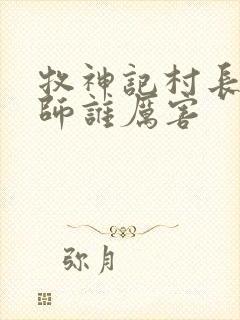 牧神記村長
師誰厲害
弥月